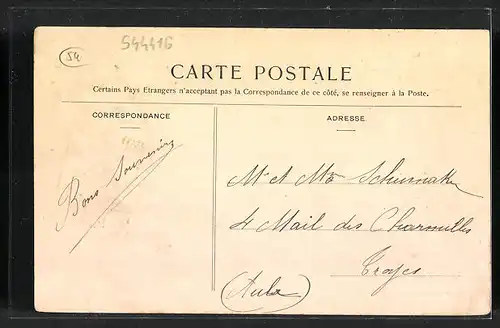 544416
54
CARTE POSTALE
Certains Pays Etrangers n'acceptant pas la Correspondance de ce côté, se renseigner à la Poste.
CORRESPONDANCE
Bons Souvenirs
ADRESSE
Mr et Me
4 Mail des Charmilles
Troyes
(Aube)